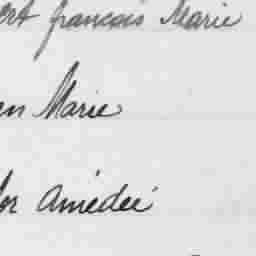 ert françois Marie
en Marie
or Amédée